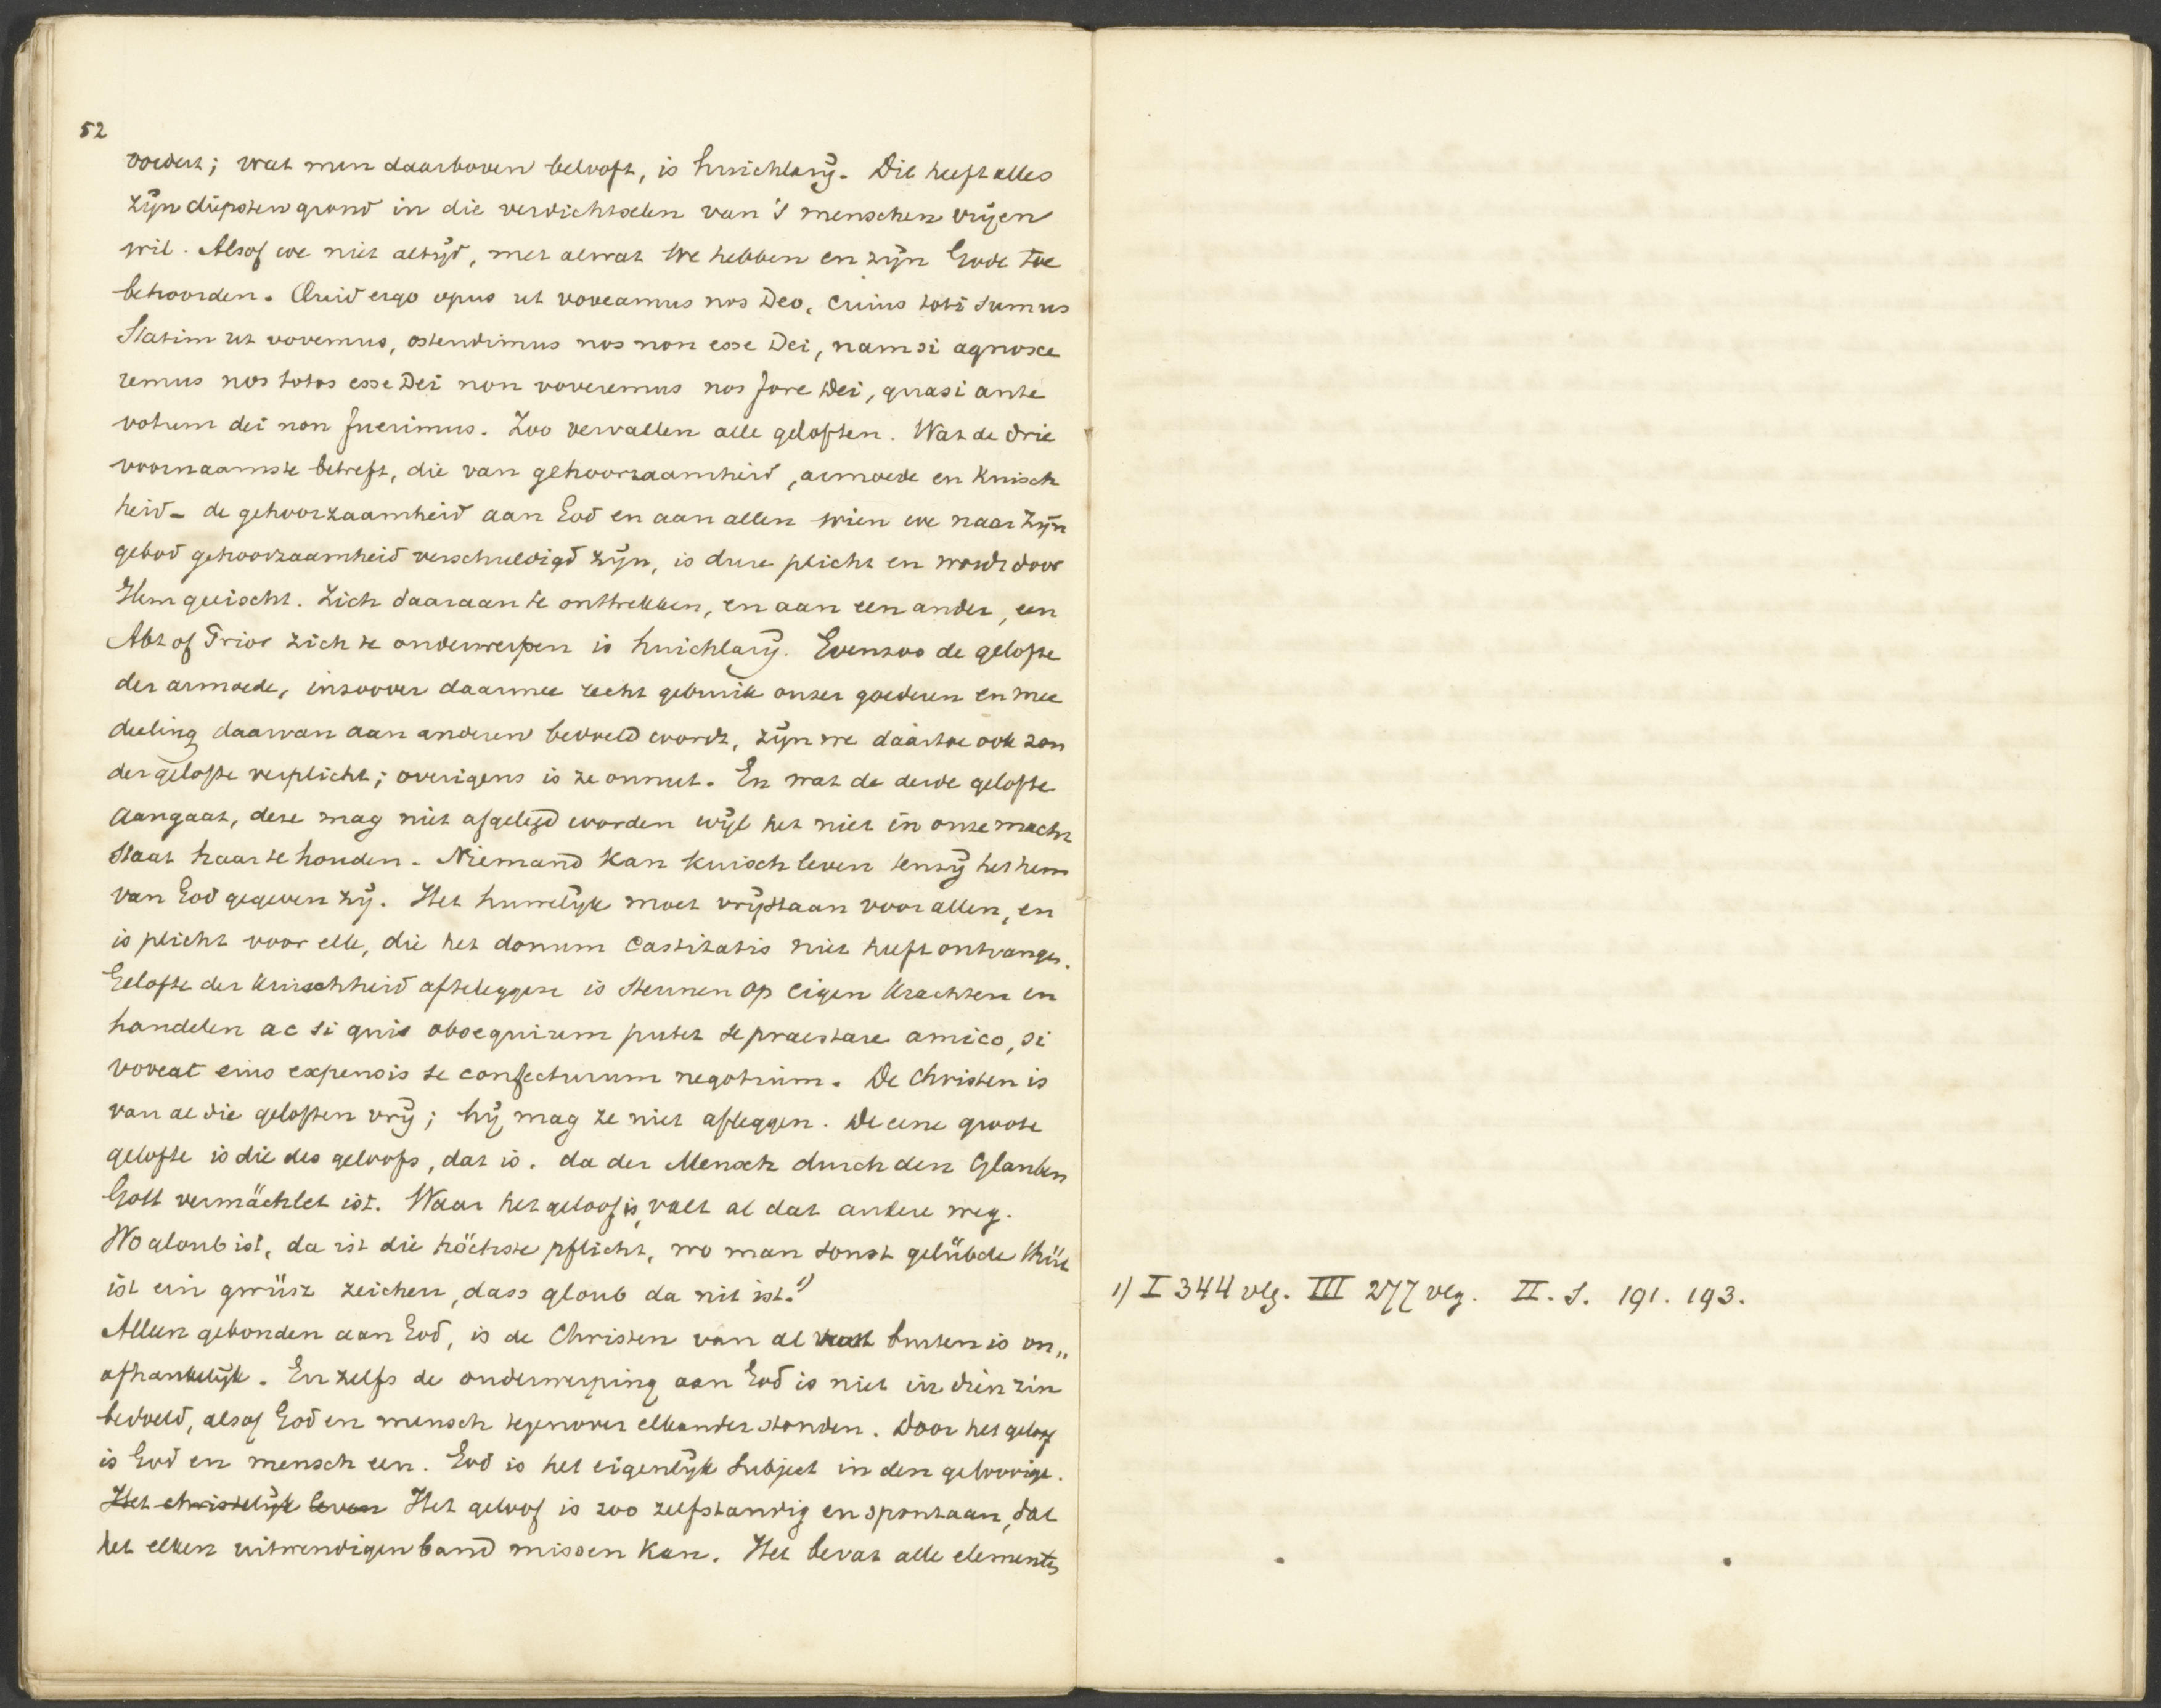 52
vordert; wat men daarboven belooft, is huichlarij. Dit heeft alles
zijn diepsten grond in die verdichtselen van 's menschen vrijen
wil. Alsof we niet altijd, met alwat we hebben en zijn Gode toe
behoorden. Quid ergo opus ut voveamus nos Deo, cuius toti sumus
Statim ut vovemus, ostendimus nos non esse Dei, nam si agnosce
remus nos totos esse Dei non voveremus nos fore Dei, quasi ante
votum dei non fuerimus. Zoo vervallen alle geloften. Wat de drie
voornaamste betreft, die van gehoorzaamheid, armoede en kuisch
heid – de gehoorzaamheid aan God en aan allen wien we naar Zijn
gebod gehoorzaamheid verschuldigd zijn, is dure plicht en wordt door
Hem geëischt. Zich daaraan te onttrekken, en aan een ander, een
Abt of Prior zich te onderwerpen is huichlarij. Evenzoo de gelofte
der armoede, inzoover daarmee recht gebruik onzer goederen en mee
deeling daarvan aan anderen bedoeld wordt, zijn we daartoe ook zon
der gelofte verplicht; overigens is ze onnut. En wat de derde gelofte
aangaat, deze mag niet afgelegd worden wijl het niet in onze macht
staat haar te houden. Niemand kan kuisch leven tenzij het hem
van God gegeven zij. Het huwelijk moet vrijstaan voor allen, en
is plicht voor elk, die het donum castitatis niet heeft ontvangen.
Gelofte der kuischheid afteleggen is steunen op eigen krachten en
handelen ac si quis obsequium putet se praestare amico, si
voveat eius expensis se confecturum negotium. De Christen is
van al die geloften vrij; hij mag ze niet afleggen. De eene groote
gelofte is die des geloofs, dat is. da der Mensch durch den Glauben
Gott vermächlet ist. Waar het geloof is, valt al dat andere weg.
Wo gloub ist, da ist die höchste pflicht, wo man sonst gelübde thüt
ist ein gwüsz zeichen, dass gloub da nit ist.1)
Alleen gebonden aan God, is de Christen van al wat buiten is on„
afhankelijk. En zelfs de onderwerping aan God is niet in dien zin
bedoeld, alsof God en mensch tegenover elkander stonden. Door het geloof
is God en mensch een. God is het eigenlijk Subject in den geloovige.
Het christelijk leven Het geloof is zoo zelfstandig en spontaan, dat
het elken uitwendigen band missen kan. Het bevat alle elementen
1) I 344 vlg. III 277 vlg. II. S. 191. 193.